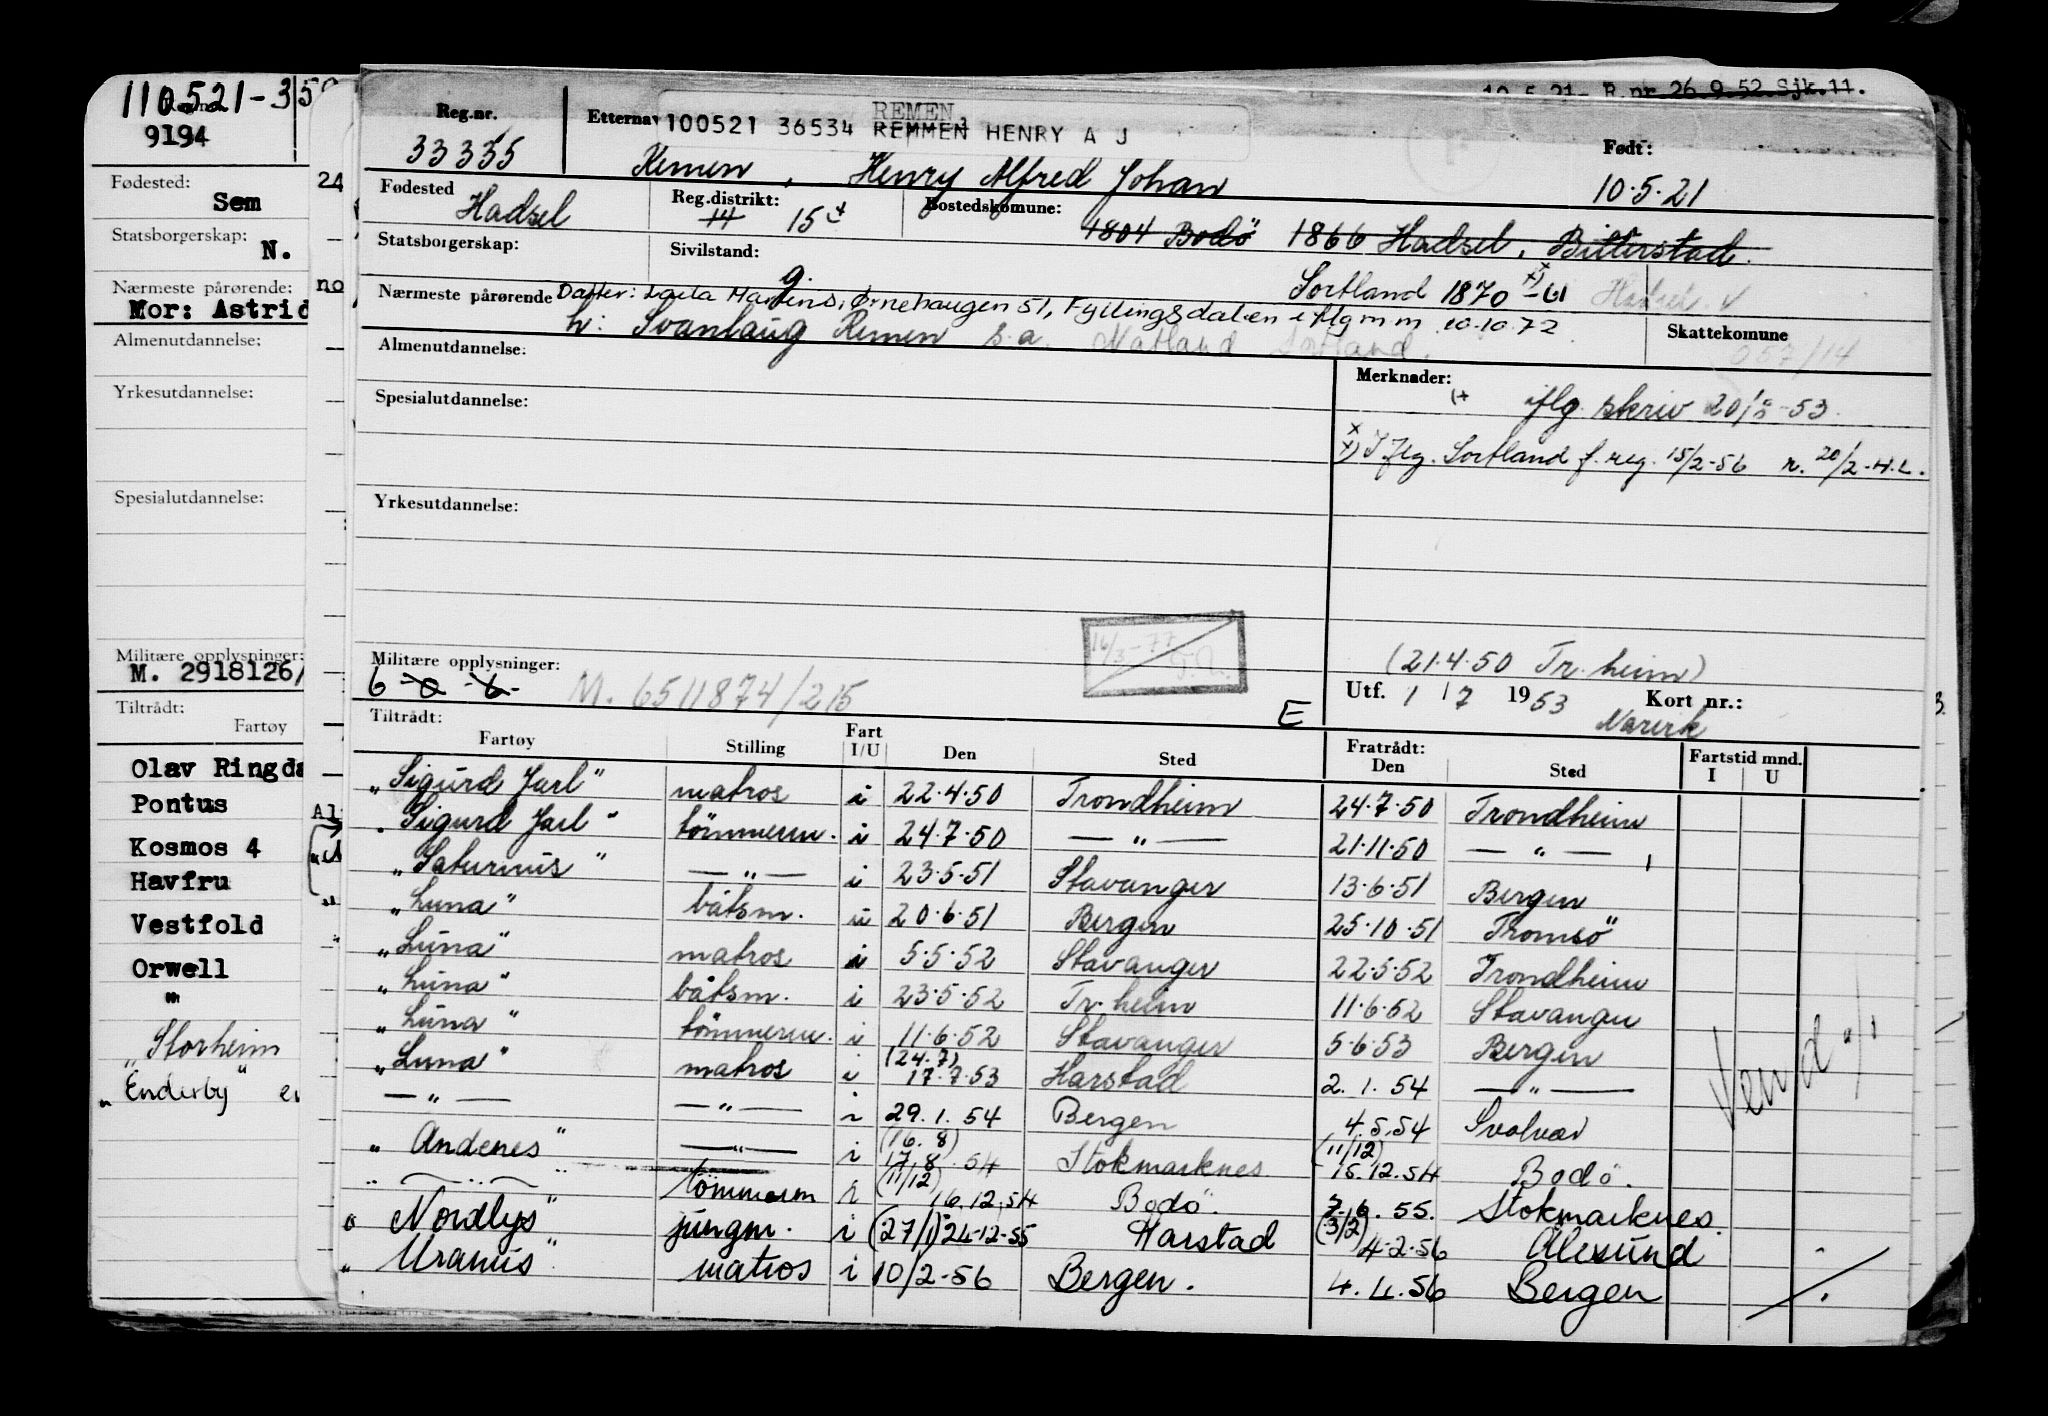 110521-3
9194
Fødested:
Sem
Statsborgerskap:
N.
Nærmeste pårørende:
Mor: Astrid
Almenutdannelse:
Yrkesutdannelse:
Spesialutdannelse:
Militære opplysninger:
M. 2918126/
Tiltrådt:
Fartøy
Olav Ringda
Pontus
Kosmos 4
Havfru
Vestfold
Orwell
"
"Storheim
"Enderby"
24
no
Al
10.5.21- R.nr 26.9.52.Sjk.11.
REMEN
Reg.nr. Etternav 100521 36534 REMMEN HENRY A J Født:
33335 Remen, Henry Alfred Johan 10.5.21
Fødested Hadsel Reg.distrikt: 14 15 + Bostedskomune: 1804 Bodö 1866 Hadsel, Bitterstad.
Statsborgerskap: Sivilstand: g. Sortland 1870 x) -61 Hadsel
Nærmeste pårørende Datter: Laila Martens, Ørnehaugen 51, Fyllingsdalen iflg m m 10.10.72
h: Svanlaug Remen s.a. Natland Sortland. Skattekomune
Almenutdannelse: Merknader:
(+ iflg. skriv 20/8-53.
Spesialutdannelse:
x) I flg. Sortland f.reg. 15/2-56 r. 20/2-H.L.
Yrkesutdannelse:
16/3-77
Militære opplysninger: (21.4.50 Tr.heim)
6 -0 -6- M. 6511874/215 Utf. 1/7 1953 Kort nr.:
Narvik
E
Tiltrådt: Fart Fratrådt: Fartstid mnd.
Fartøy Stilling I/U Den Sted Den Sted I U
"Sigurd Jarl" matros i 22.4.50 Trondheim 24.7.50 Trondheim
"Sigurd Jarl" tömmerm. i 24.7.50 — " — 21.11.50 — " —
"Saturnus" — " — i 23.5.51 Stavanger 13.6.51 Bergen
"Luna" båtsm. i 20.6.51 Bergen 25.10.51 Tromsö
"Luna" matros i 5.5.52 Stavanger 22.5.52 Trondheim
"Luna" båtsm. i 23.5.52 Tr.heim 11.6.52 Stavanger
"Luna" tömmerm. i 11.6.52 Stavanger 5.6.53 Bergen
"Luna" matros i (24.7) 17.7.53 Harstad 2.1.54 — " —
— " — — " — i 29.1.54 Bergen 4.5.54 Svolvær
"Andenes" — " — i (16.8) 17.8.54 Stokmarknes (11/12) 15.12.54 Bodö.
— " — tömmerm i (11/12) 16.12.54 Bodö. 7.6.55. Stokmarknes
"Nordlys" jungm. i (27/1) 24-12-55 Harstad (3/2) 4-2-56 Ålesund
"Uranus" matros i 10/2-56 Bergen. 4.4.56 Bergen
Vend